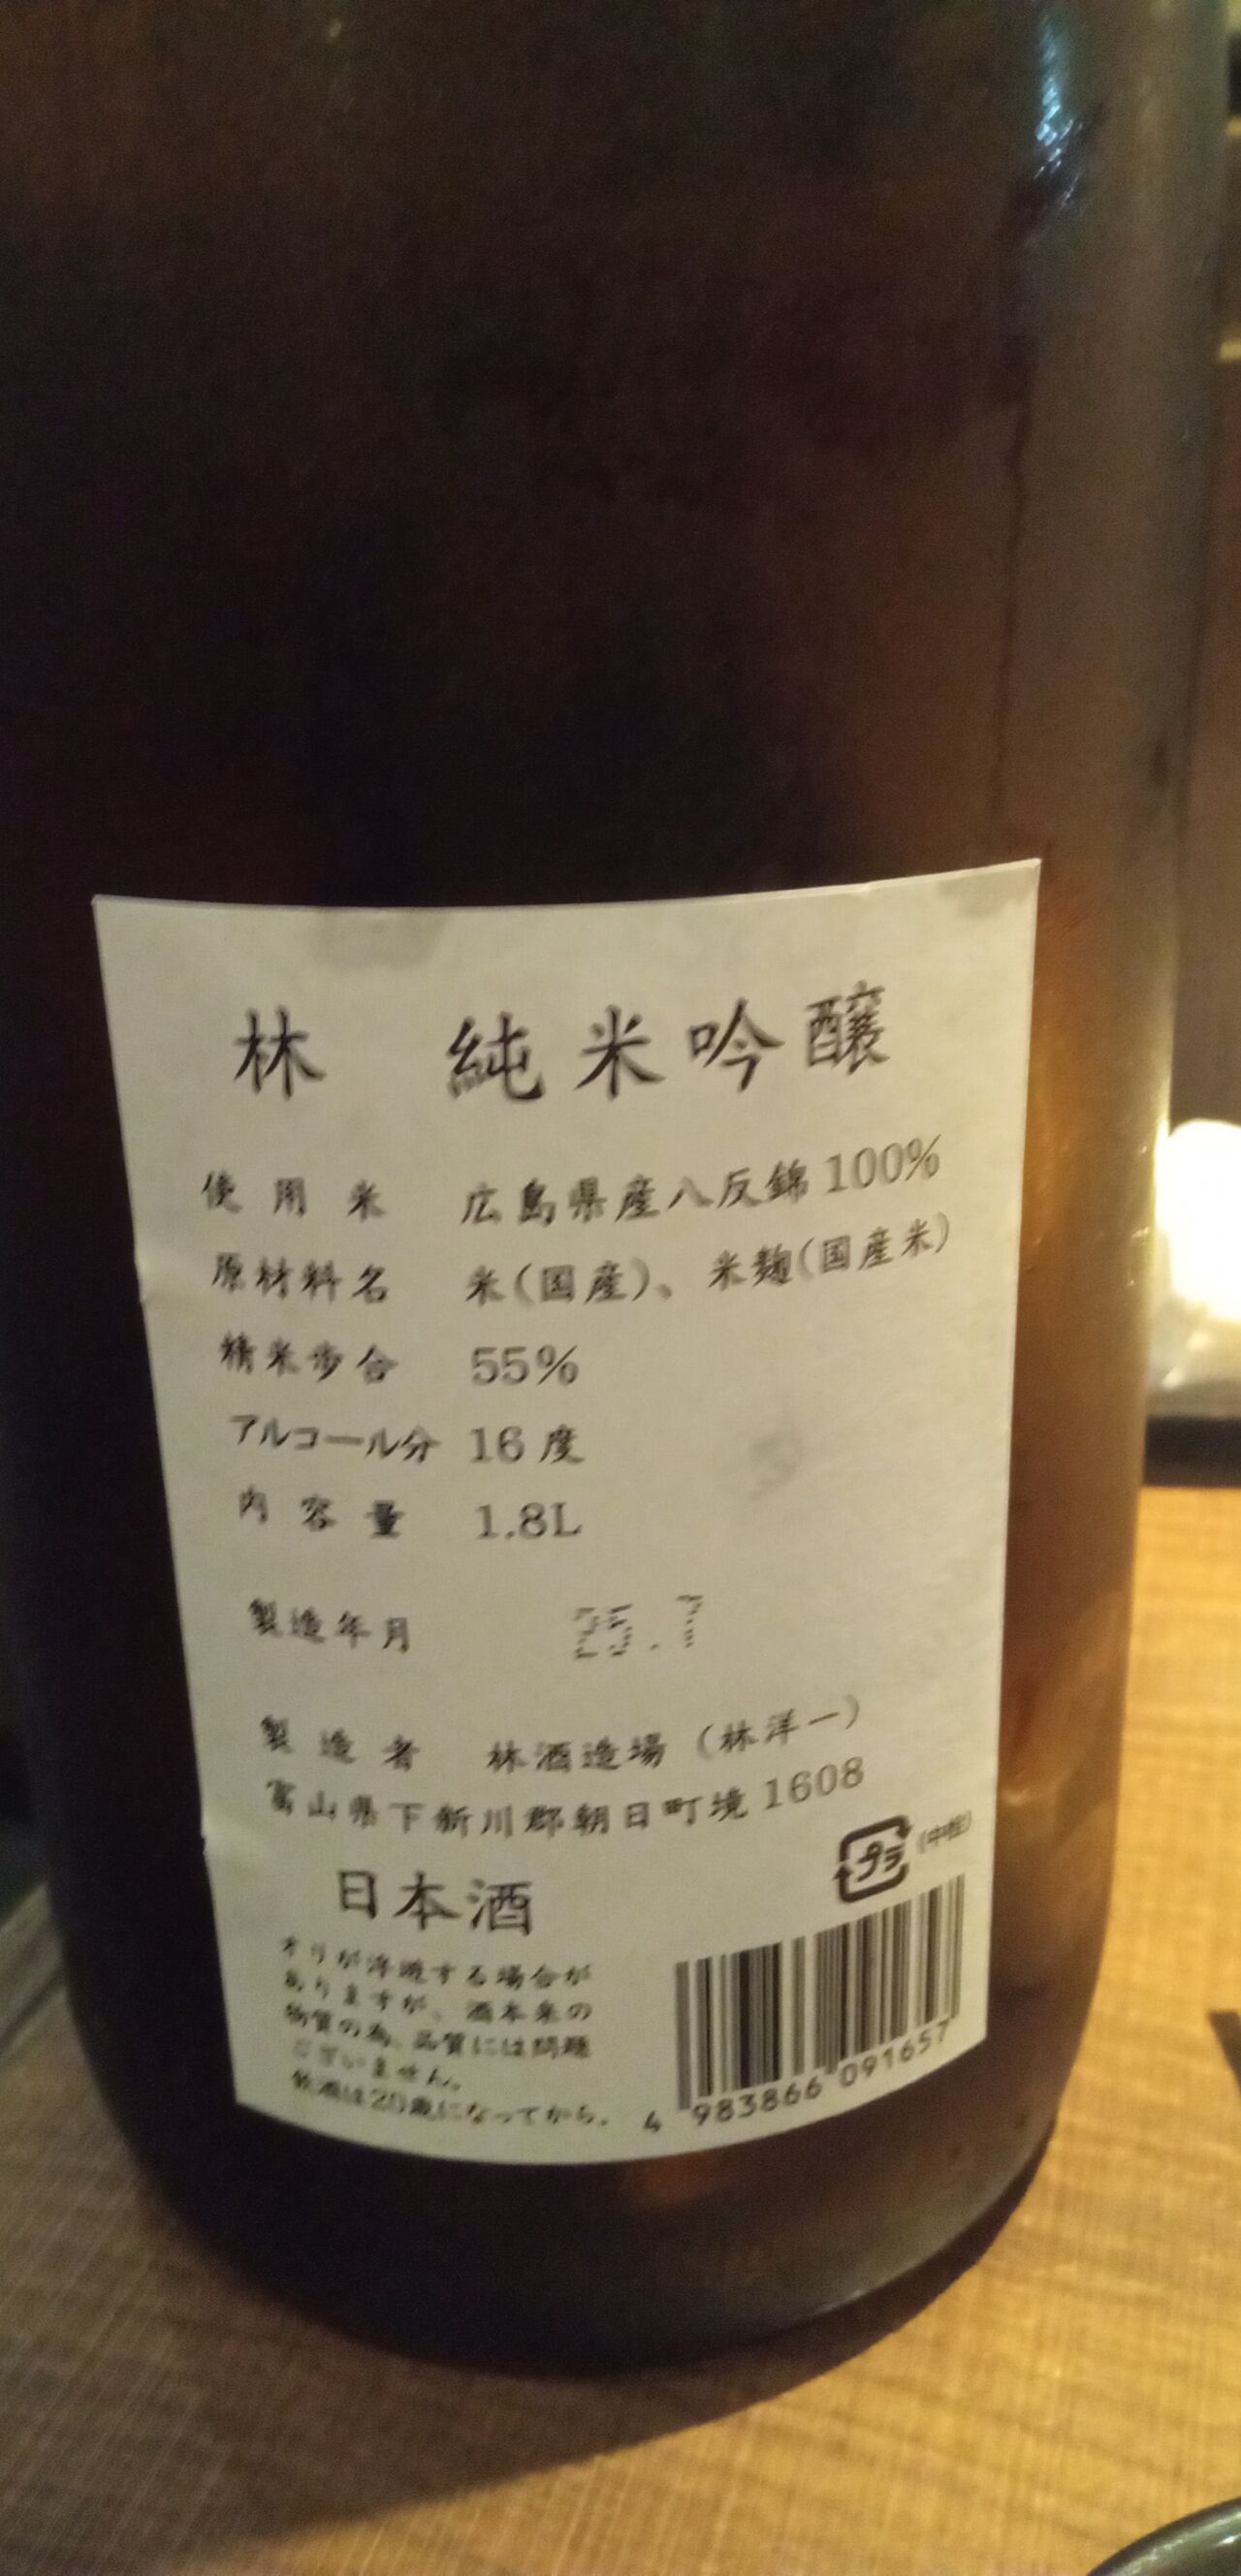 林 純米吟醸
使用米 広島県産八反錦100%
原材料名 米(国産)、米麹(国産米)
精米歩合 55%
アルコール分 16度
内容量 1.8L
製造年月 25.7
製造者 林酒造場（林洋一）
富山県下新川郡朝日町境1608
プラ (中栓)
日本酒
オリが浮遊する場合が
ありますが、酒本来の
物質の為、品質には問題
ございません。
飲酒は20歳になってから。
4 983866 091657